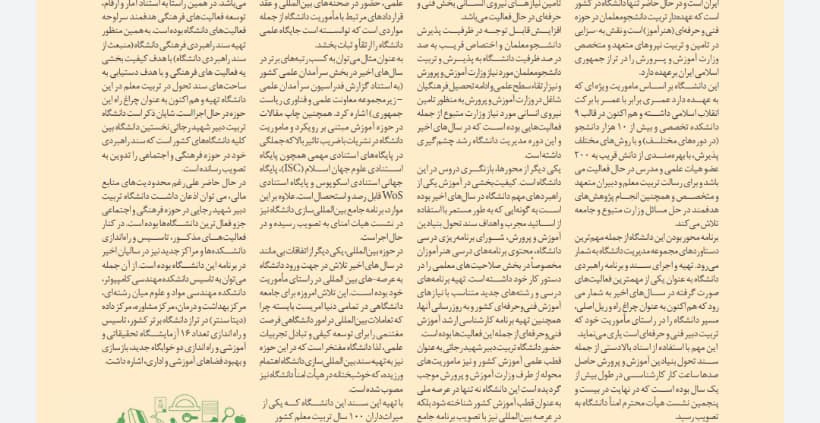 ایران است و در حال حاضر تنها دانشگاه در کشور
است که عهده‌دار تربیت دانشجومعلمان در حوزه
فنی و حرفه‌ای (هنرآموز) است و نقش به‌سزایی
در تامین و تربیت نیروهای متعهد و متخصص
وزارت آموزش و پرورش را در تراز جمهوری
اسلامی ایران برعهده دارد.
این دانشگاه بر اساس ماموریت ویژه‌ای که
به عهده دارد عمری برابر با عمر با برکت
انقلاب اسلامی داشته و هم اکنون در قالب ۹
دانشکده تخصصی و بیش از ۱۰ هزار دانشجو
(در دوره‌های مختلف) و با روش‌های مختلف
پذیرش، با بهره‌مندی از دانش قریب به ۲۰۰
عضو هیات علمی و مدرس در حال فعالیت می
باشد و برای رسالت تربیت معلم و دبیران متعهد
و متخصص و همچنین انجام پژوهش‌های
هدفمند در حل مسائل وزارت متبوع و جامعه
تلاش می‌کند.
برنامه محور بودن این دانشگاه از جمله مهم‌ترین
دستاوردهای مجموعه مدیریت دانشگاه به شمار
می‌رود. تهیه و اجرای سند و برنامه راهبردی
دانشگاه به عنوان یکی از مهمترین فعالیت‌های
صورت گرفته در سال‌های اخیر به شمار می
رود که هم اکنون به عنوان چراغ راه و ریل اصلی،
مسیر دانشگاه را در راستای مأموریت خود که
تربیت دبیر فنی و حرفه‌ای است یاری می‌نماید.
این مهم با استفاده از اسناد بالادستی از جمله
سند تحول بنیادین آموزش و پرورش حاصل
صدها ساعت کار کارشناسی در طول بیش از
یک سال بوده است که در نهایت در بیست و
پنجمین نشست هیأت محترم امنأ دانشگاه به
تصویب رسید.
تامین نیازهای نیروی انسانی بخش فنی و
حرفه‌ای در حال فعالیت می‌باشد.
افزایش قابل توجه در ظرفیت پذیرش
دانشجومعلمان و اختصاص قریب به صد
در صد ظرفیت دانشگاه به پذیرش و تربیت
دانشجومعلمان مورد نیاز وزارت آموزش و پرورش
و نیز ارتقاء سطح علمی و ادامه تحصیل فرهنگیان
شاغل در وزارت آموزش و پرورش به منظور تامین
نیروی انسانی مورد نیاز وزارت متبوع از جمله
فعالیت‌هایی بوده است که در سال‌های اخیر
و این دوره مدیریت دانشگاه رشد چشم‌گیری
داشته است.
یکی دیگر از محورها، بازنگری دروس در این
دانشگاه است. کیفیت‌بخشی در آموزش یکی از
راهبردهای مهم دانشگاه در سال‌های اخیر بوده
است به گونه‌ایی که به طور مستمر با استفاده
از اساتید مجرب و اهداف سند تحول بنیادین
آموزش و پرورش، شورای برنامه‌ریزی درسی
دانشگاه، محتوی برنامه‌های درسی هنرآموزان
مخصوصاً در بخش صلاحیت‌های معلمی را در
دستور کار خود داشته است. تهیه برنامه‌های
درسی و رشته‌های جدید متناسب با نیازهای
آموزش فنی‌وحرفه‌ای کشور و به روزرسانی آنها،
همچنین تهیه برنامه کارشناسی ارشد آموزش
فنی و حرفه‌ای از جمله این فعالیت‌ها بوده است.
حضور دانشگاه تربیت دبیر شهید رجائی به عنوان
قطب علمی آموزش کشور و نیز ماموریت‌های
محوله از طرف وزارت آموزش و پرورش موجب
گردیده است این دانشگاه نه تنها در عرصه ملی
به عنوان قطب آموزش کشور شناخته شود بلکه
در عرصه بین‌المللی نیز با تصویب برنامه جامع
علمی، حضور در صحنه‌های بین‌المللی و عقد
قراردادهای مرتبط با مأموریت دانشگاه از جمله
مواردی است که توانسته است جایگاه علمی
دانشگاه را ارتقأ و ثبات بخشد.
به عنوان مثال می‌توان به کسب رتبه‌های برتر در
سال‌های اخیر در بخش سرآمدان علمی کشور
(به استناد گزارش فدراسیون سرآمدان علمی
– زیرمجموعه معاونت علمی و فناوری ریاست
جمهوری) اشاره کرد. همچنین چاپ مقالات
در حوزه آموزش مبتنی بر رویکرد و ماموریت
دانشگاه در نشریات با ضریب تاثیر بالا که جملگی
در پایگاه‌های استنادی مهمی همچون پایگاه
استنادی علوم جهان اسلام (ISC)، پایگاه
جهانی استنادی اسکوپوس و پایگاه استنادی
WoS قابل رصد و استحصال است. علاوه بر این
موارد، برنامه جامع بین‌المللی‌سازی دانشگاه نیز
در نشست هیات امنای به تصویب رسیده و در
حال اجراست.
در حوزه بین‌المللی، یکی دیگر از اتفاقات بی‌مانند
در سال‌های اخیر تلاش در جهت ورود دانشگاه
به عرصه‌های بین المللی در راستای ماموریت
خود بوده است. این تلاش امروزه برای جامعه
دانشگاهی در تمامی دنیا امریست بایسته؛ چرا
که تعاملات بین‌المللی در امور دانشگاهی فرصت
مغتنمی را برای توسعه کیفی و تبادل تجربیات
علمی. لذا دانشگاه مفتخر است که در این حوزه
نیز به تهیه سند بین‌المللی سازی دانشگاه اهتمام
ورزیده، که خوشبختانه در هیأت امنأ دانشگاه نیز
مصوب شده است.
با تهیه این سند این دانشگاه که یکی از
میراث‌داران ۱۰۰ سال تربیت معلم کشور
می‌باشد. در همین راستا به استناد آمار و ارقام،
توسعه فعالیت‌های فرهنگی هدفمند سرلوحه
فعالیت‌های دانشگاه بوده است. به همین منظور
تهیه سند راهبردی فرهنگی دانشگاه (منبعث از
سند راهبردی دانشگاه) با هدف کیفیت بخشی
به فعالیت های فرهنگی و با هدف دستیابی به
ساحت‌های سند تحول در تربیت معلم در این
دانشگاه تهیه و هم اکنون به عنوان چراغ راه این
حوزه در حال اجرا است. شایان ذکر است دانشگاه
تربیت دبیر شهید رجائی نخستین دانشگاه بین
کلیه دانشگاه‌های کشور است که سند راهبردی
خود در حوزه فرهنگی و اجتماعی را تدوین به
تصویب رسانده است.
در حال حاضر علی رغم محدودیت‌های منابع
مالی، می توان اذعان داشت دانشگاه تربیت
دبیر شهید رجائی در حوزه فرهنگی و اجتماعی
جزو فعال ترین دانشگاه‌ها بوده است. در کنار
فعالیت‌های مذکور، تاسیس و راه‌اندازی
دانشکده‌ها و مراکز جدید نیز در سالیان اخیر
در برنامه این دانشگاه بوده است. از آن جمله
می‌توان به تاسیس دانشکده مهندسی کامپیوتر،
دانشکده مهندسی مواد و علوم میان رشته‌ای،
مرکز بهداشت و درمان، مرکز مشاوره، مرکز داده
(دیتا سنتر) در تراز دانشگاه برتر کشور، تاسیس
و راه اندازی تعداد ۱۶ آزمایشگاه تحقیقاتی و
آموزشی و راه اندازی دو خوابگاه جدید، بازسازی
و بهبود فضاهای آموزشی و اداری، اشاره داشت.